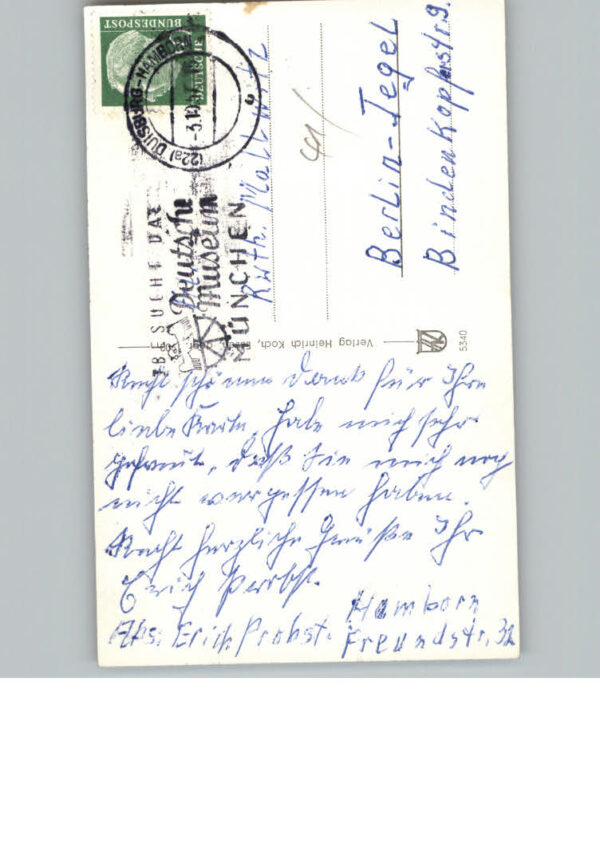 DEUTSCHE
BUNDESPOST
(22a) DUISBURG-HAMBORN
-3.10
BESUCHT DAS
Deutsche
Museum
MÜNCHEN
Ruth. Mallwitz
Berlin-Tegel
Bindenkopferstr. 9.
Verlag Heinrich Koch,
5340
Recht schönen Dank für Ihre
liebe Karte, habe mich sehr
gefreut, daß Sie mich noch
nicht vergessen haben.
Recht herzliche Grüße Ihr
Erich Probst.
Abs: Erich Probst. Hamborn
Freundstr. 32